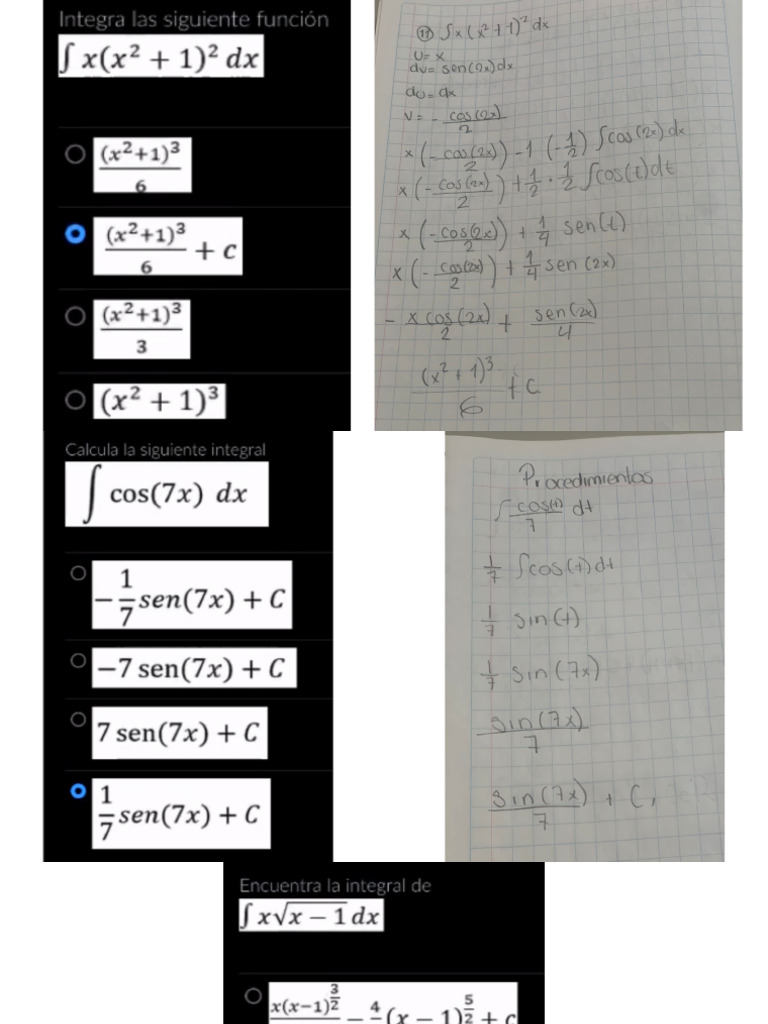 Integra las siguiente función
∫ x(x² + 1)² dx
(x²+1)³/6
(x²+1)³/6 + c
(x²+1)³/3
(x² + 1)³
11 ∫x(x²+1)² dx
u= x
dv= sen(2x)dx
du= dx
v= - cos(2x)/2
x(- cos(2x)/2) - 1 (-1/2) ∫cos(2x) dx
x(- cos(2x)/2) + 1/2 · 1/2 ∫cos(t)dt
x(- cos(2x)/2) + 1/4 sen(t)
x(- cos(2x)/2) + 1/4 sen (2x)
- x cos(2x)/2 + sen(2x)/4
(x² + 1)³/6 + c
Calcula la siguiente integral
∫ cos(7x) dx
-1/7 sen(7x) + C
-7 sen(7x) + C
7 sen(7x) + C
1/7 sen(7x) + C
Procedimientos
∫ cos(t)/7 dt
1/7 ∫cos(t)dt
1/7 sin(t)
1/7 sin(7x)
sin(7x)/7
sin(7x)/7 + C,
Encuentra la integral de
∫ x√x − 1 dx
x(x−1)^3/2 − 4 (x − 1)^5/2 + c